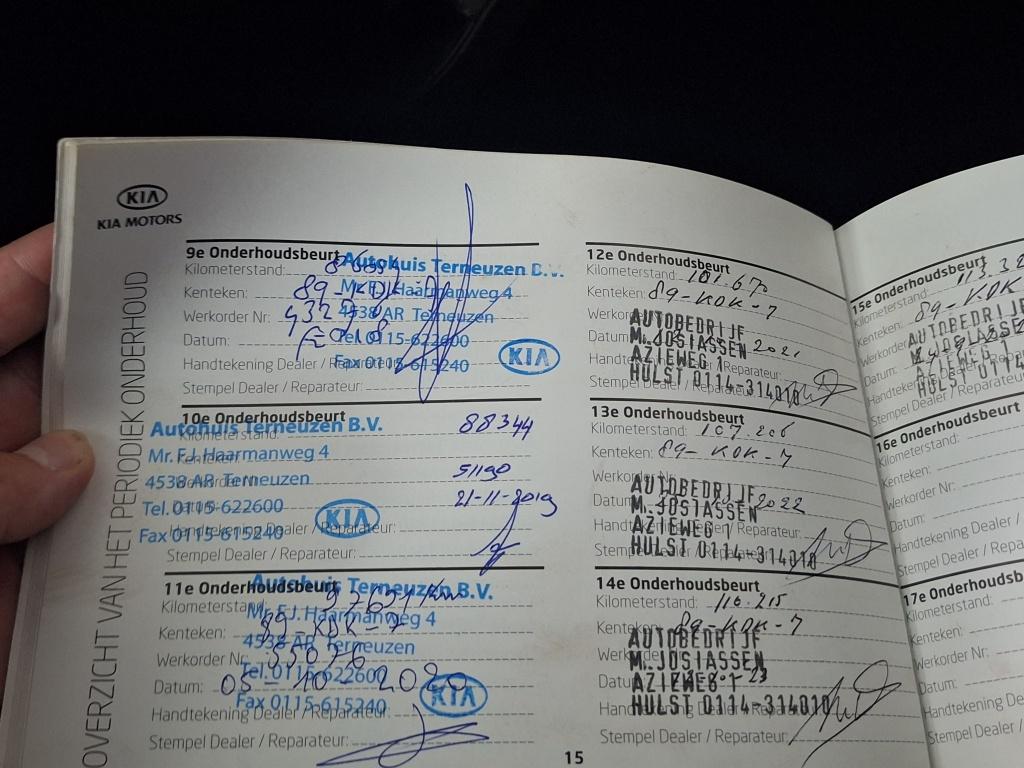 KIA
KIA MOTORS
OVERZICHT VAN HET PERIODIEK ONDERHOUD
9e Onderhoudsbeurt
Autohuis Terneuzen B.V.
Kilometerstand:
Mr. F.J. Haarmanweg 4
Kenteken: 89-KDK-7
4538 AR Terneuzen
Werkorder Nr:
Tel. 0115-622600
Datum:
Fax 0115-615240
Handtekening Dealer / Reparateur:
KIA
Stempel Dealer / Reparateur:
10e Onderhoudsbeurt
Autohuis Terneuzen B.V.
Kilometerstand: 88344
Mr. F.J. Haarmanweg 4
Kenteken:
4538 AR Terneuzen
Werkorder Nr: 51190
Tel. 0115-622600
Datum: 21-11-2019
Fax 0115-615240
Handtekening Dealer / Reparateur:
KIA
Stempel Dealer / Reparateur:
11e Onderhoudsbeurt
Autohuis Terneuzen B.V.
Kilometerstand:
Mr. F.J. Haarmanweg 4
Kenteken: 89-KDK-7
4538 AR Terneuzen
Werkorder Nr:
Tel. 0115-622600
Datum: 05-10-2020
Fax 0115-615240
KIA
Handtekening Dealer / Reparateur:
Stempel Dealer / Reparateur:
12e Onderhoudsbeurt
Kilometerstand: 101.670
Kenteken: 89-KDK-7
Werkorder
AUTOBEDRIJF
Datum: 2021
M. JOSIASSEN
AZIEWEG 1
HULST 0114-314010
Stempel Dealer / Reparateur:
13e Onderhoudsbeurt
Kilometerstand: 107.206
Kenteken: 89-KDK-7
Werkorder Nr:
AUTOBEDRIJF
Datum: 2022
M. JOSIASSEN
AZIEWEG 1
Reparateur:
HULST 0114-314010
Stempel Dealer
14e Onderhoudsbeurt
Kilometerstand: 110.215
Kenteken: 89-KDK-7
AUTOBEDRIJF
M. JOSIASSEN
Datum: 23
AZIEWEG 1
HULST 0114-314010
Stempel Dealer / Reparateur:
15
15e Onderhoudsbeurt
Kilometerstand: 113.32
Kenteken: 89-KDK
Werkorder
AUTOBEDRIJF
Datum:
M. JOSIASSEN
AZIEWEG 1
HULST 0114-314
Stempel Dealer / Reparateur:
16e Onderhoudsbeurt
Kilometerstand:
Kenteken:
Werkorder Nr:
Datum:
Handtekening Dealer /
Stempel Dealer / Repara
17e Onderhoudsb
Kilometerstand:
Kenteken:
Werkorder Nr:
Datum:
Handtekening De
Stempel Dealer /